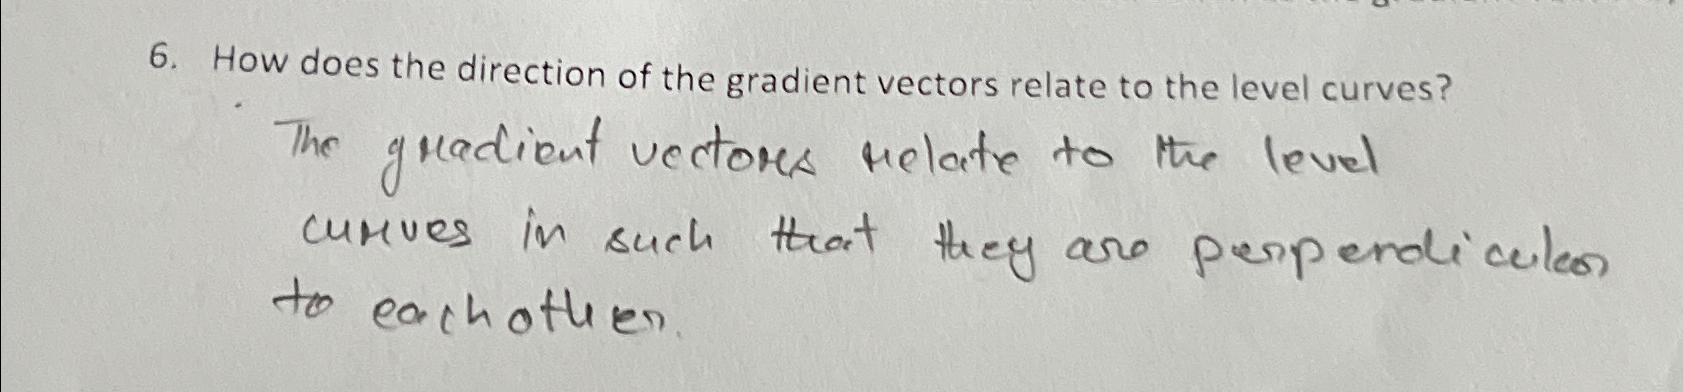 6. How does the direction of the gradient vectors relate to the level curves?
The gradient vectors relate to the level
curves in such that they are perpendicular
to eachother.